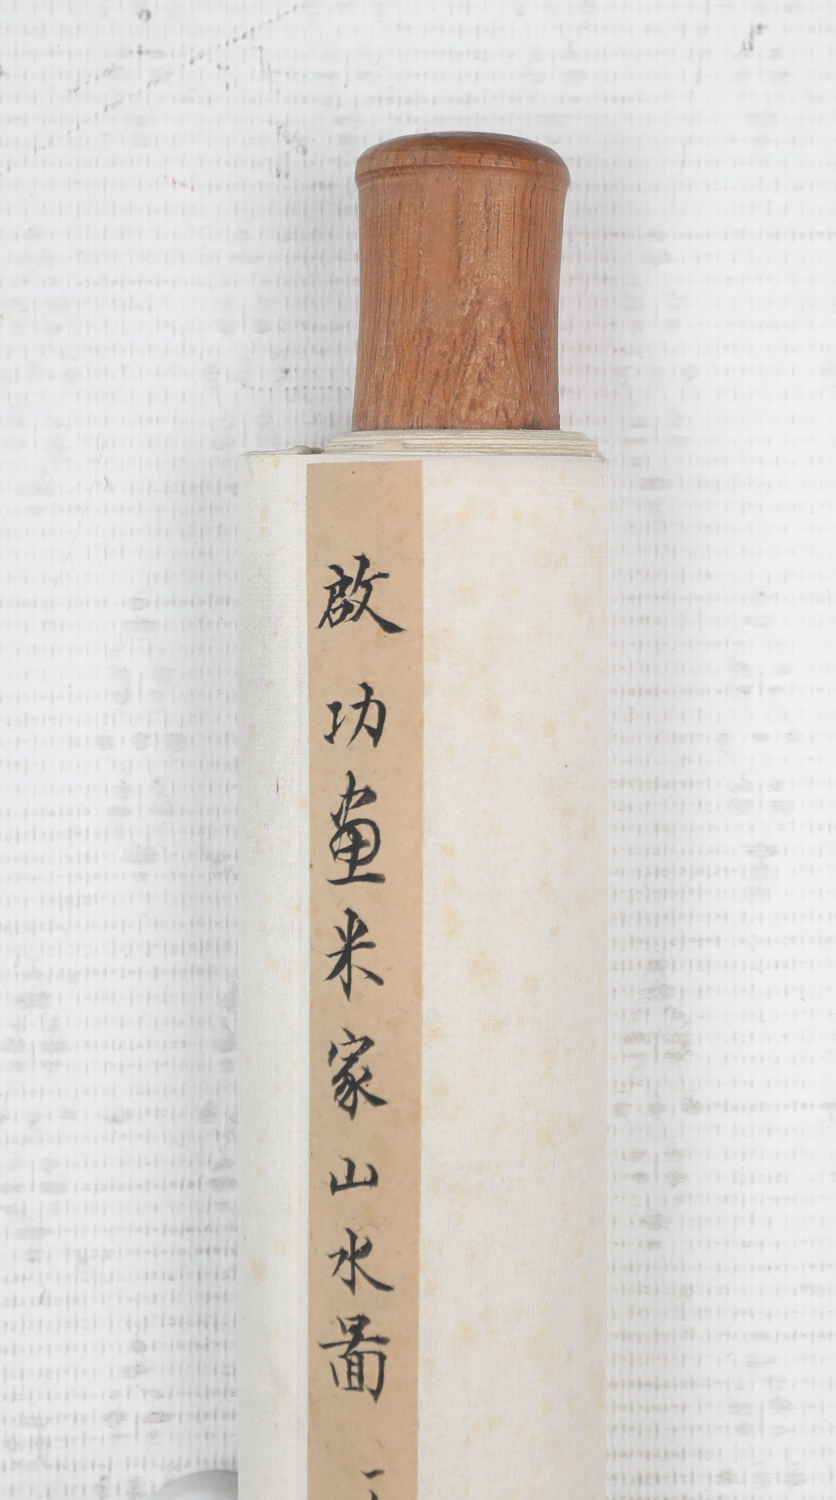 啟功畫米家山水圖